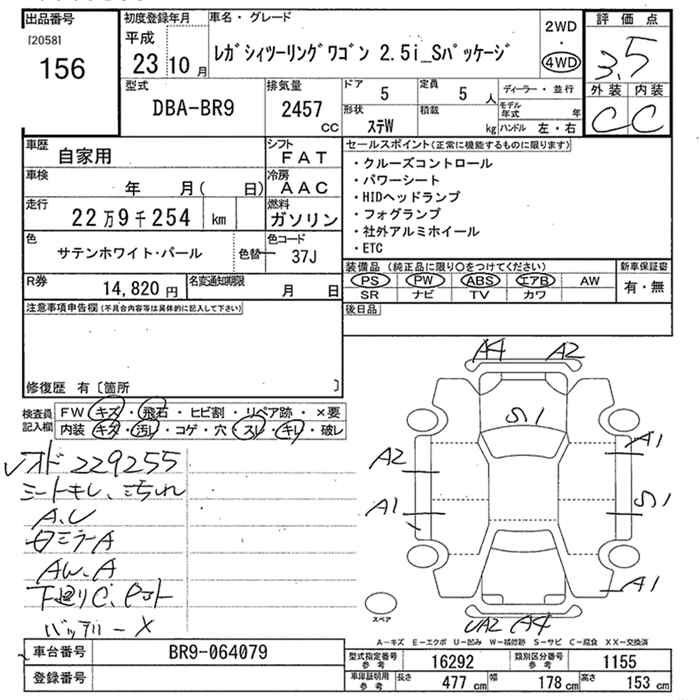 出品番号
[2058]
156
初度登録年月
平成
23 10 月
車名・グレード
ﾚｶﾞｼｨﾂｰﾘﾝｸﾞﾜｺﾞﾝ 2.5i_Sﾊﾟｯｹｰｼﾞ
2WD
・
4WD
評価点
3.5
外装 内装
C C
型式
DBA-BR9
排気量
2457
CC
ドア 5
定員 5 人
形状
ｽﾃW
積載 kg
ディーラー・並行
モデル年式 年
ハンドル 左・右
車歴
自家用
シフト
FAT
車検
年 月( 日)
冷房
AAC
走行
22万9千254 km
燃料
ガソリン
色
サテンホワイト・パール
色替
色コード
37J
R券
14,820 円
名変通知期限
月 日
セールスポイント(正常に機能するものに限ります)
・クルーズコントロール
・パワーシート
・HIDヘッドランプ
・フォグランプ
・社外アルミホイール
・ETC
装備品 (純正品に限り○をつけてください)
PS PW ABS エアB AW
SR ナビ TV カワ
新車保証書
有・無
後日品
注意事項申告欄(不具合内容等は具体的に記入して下さい)
修復歴 有〔箇所 〕
検査員記入欄
FW キズ・飛石・ヒビ割・リペア跡・×要
内装 キズ・汚レ・コゲ・穴・スレ・キレ・破レ
229255
A.U
AW.A
バッテリーX
A4 A2
S1
A1
A2
A1
S1
A1
UA2 A4
スペア
A－キズ E－エクボ U－凹み W－補修跡 S－サビ C－腐食 XX－交換済
車台番号 BR9-064079
登録番号
型式指定番号参考 16292
類別区分番号参考 1155
車庫証明用参考 長さ 477 cm 幅 178 cm 高さ 153 cm